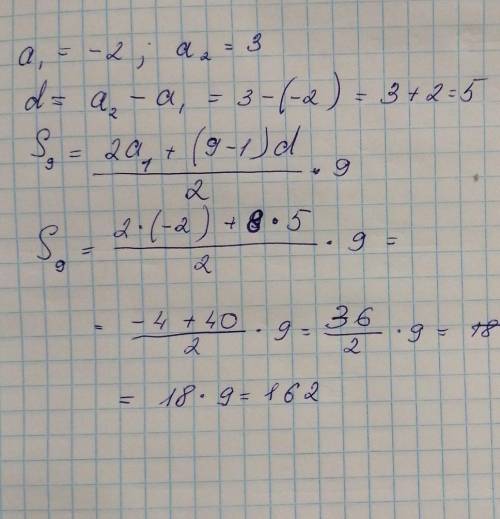 a₁ = -2 ; a₂ = 3
d = a₂ - a₁ = 3 - (-2) = 3 + 2 = 5
S₉ = (2a₁ + (9-1)d)/2 · 9
S₉ = (2·(-2) + 8·5)/2 · 9 =
= (-4 + 40)/2 · 9 = 36/2 · 9 = 18
= 18 · 9 = 162